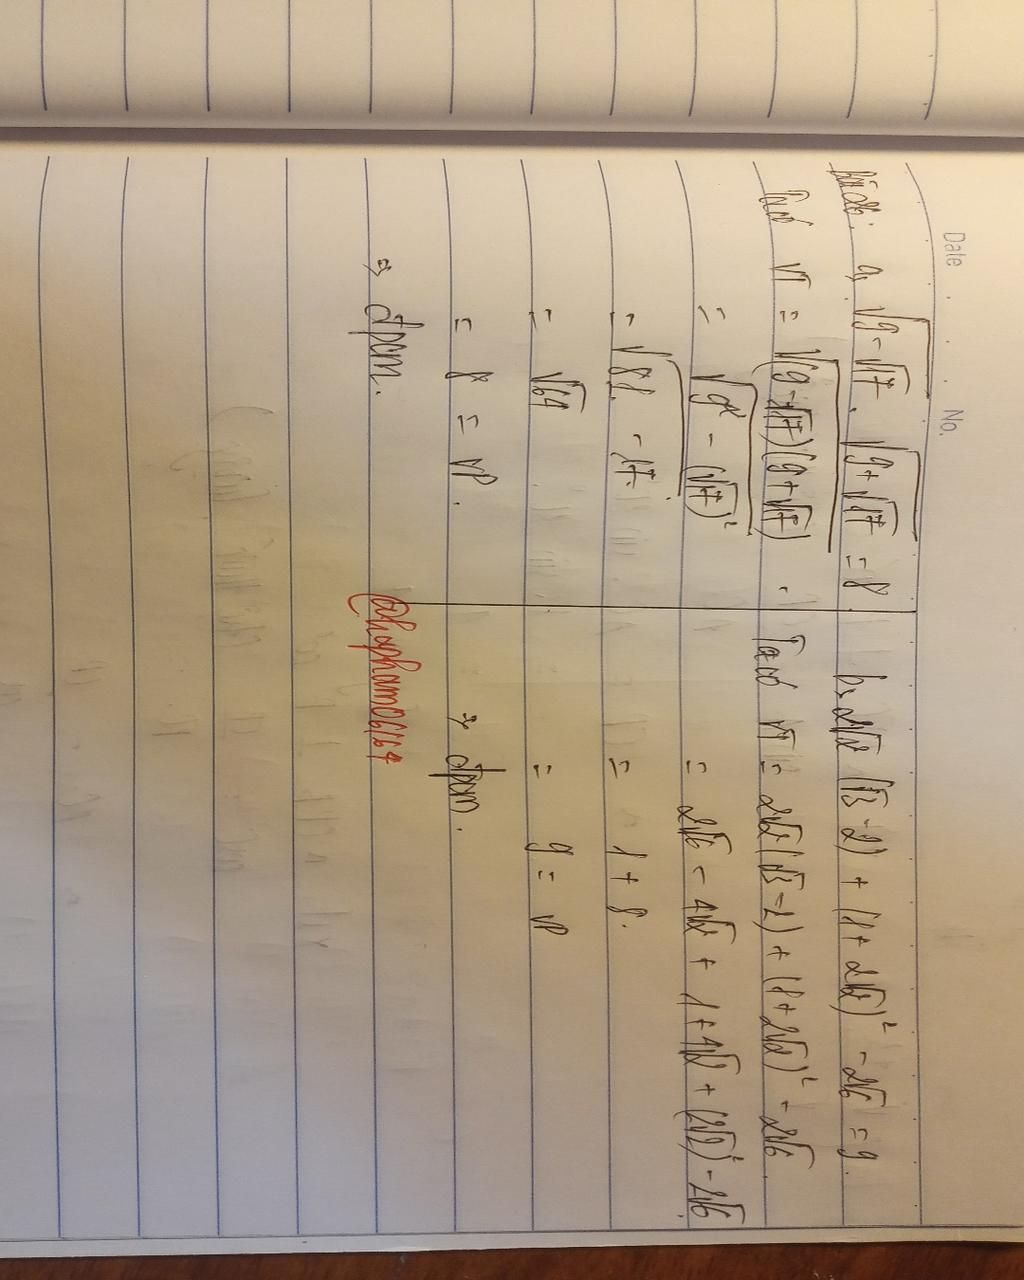 Date No.
Bài 26: a, √(9-√17) . √(9+√17) = 8
Ta có VT = √((9-√17)(9+√17))
= √(9² - (√17)²)
= √(81 - 17)
= √64
= 8 = VP.
⇒ đpcm.
b, 2√2 (√3-2) + (1+2√2)² - 2√6 = 9
Ta có VT = 2√2(√3-2) + (1+2√2)² - 2√6
= 2√6 - 4√2 + 1 + 4√2 + (2√2)² - 2√6
= 1 + 8.
= 9 = VP
⇒ đpm.
@hapham06164